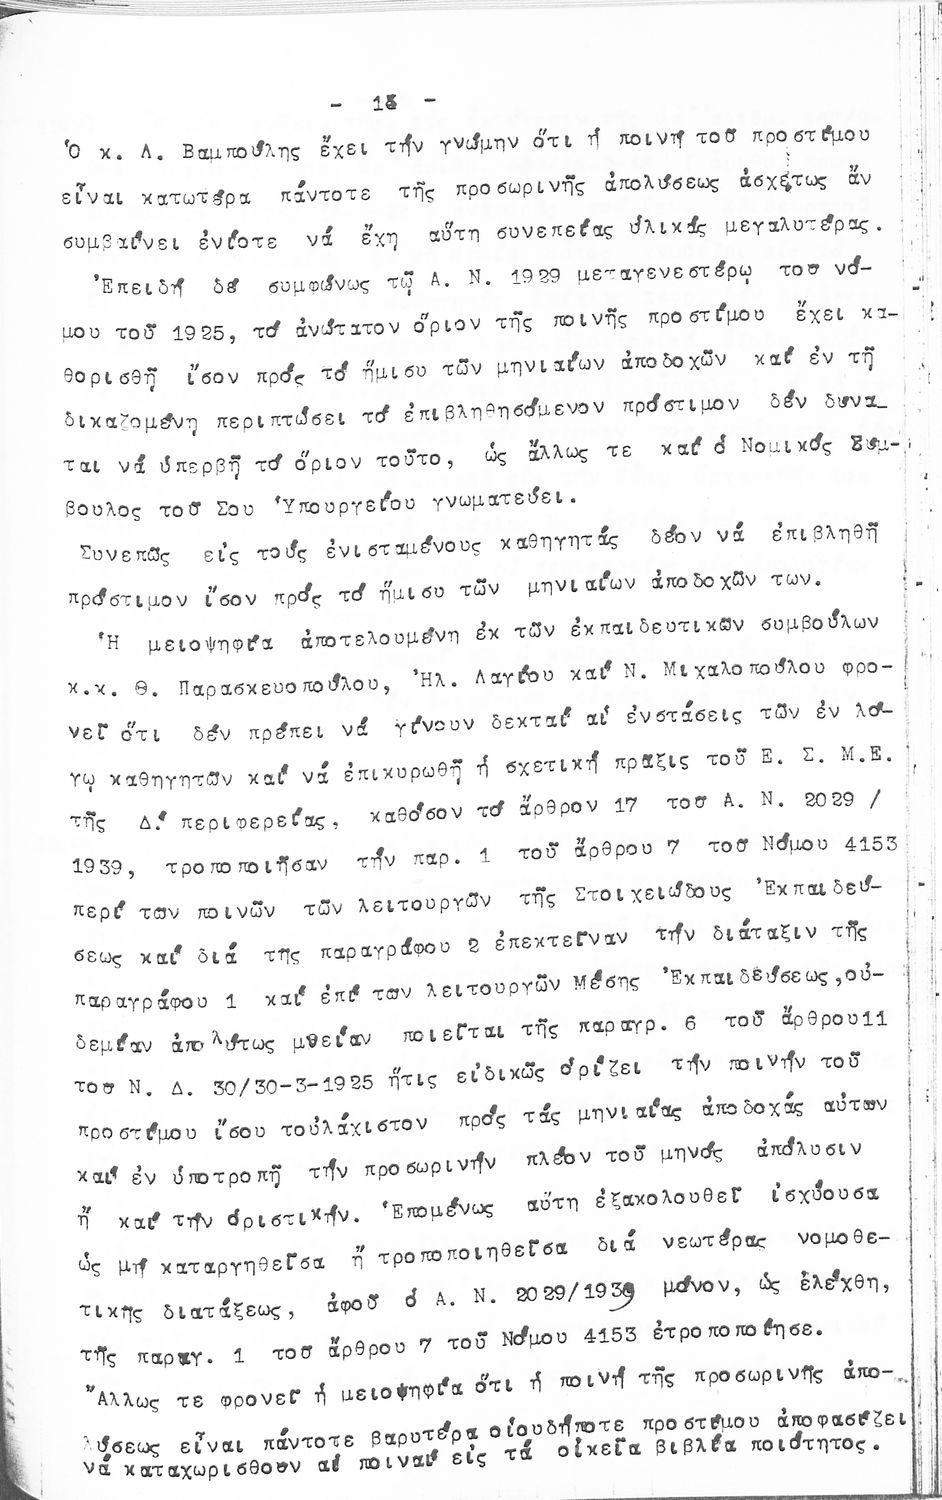 - 13 -
Ὁ κ. Λ. Βαμπούλης ἔχει τήν γνώμην ὅτι ἡ ποινή τοῦ προστίμου
εἶναι κατωτέρα πάντοτε τῆς προσωρινῆς ἀπολύσεως ἀσχέτως ἄν
συμβαίνει ἐνίοτε νά ἔχη αὕτη συνεπείας ὑλικάς μεγαλυτέρας.
Ἐπειδή δέ συμφώνως τῷ Α. Ν. 1929 μεταγενεστέρῳ του νό-
μου τοῦ 1925, τό ἀνώτατον ὅριον τῆς ποινῆς προστίμου ἔχει κα-
θορισθῆ ἴσον πρός τό ἥμισυ τῶν μηνιαίων ἀποδοχῶν καί ἐν τῇ
δικαζομένη περιπτώσει τό ἐπιβληθησόμενον πρόστιμον δέν δύνα-
ται νά ὑπερβῆ τό ὅριον τοῦτο, ὡς ἄλλως τε καί ὁ Νομικός Σύμ-
βουλος τοῦ Σου Ὑπουργείου γνωματεύει.
Συνεπῶς εἰς τούς ἐνισταμένους καθηγητάς δέον νά ἐπιβληθῆ
πρόστιμον ἴσον πρός τό ἥμισυ τῶν μηνιαίων ἀποδοχῶν των.
Ἡ μειοψηφία ἀποτελουμένη ἐκ τῶν ἐκπαιδευτικῶν συμβούλων
κ.κ. Θ. Παρασκευοπούλου, Ἠλ. Λαγίου καί Ν. Μιχαλοπούλου φρο-
νεῖ ὅτι δέν πρέπει νά γίνουν δεκταί αἱ ἐνστάσεις τῶν ἐν λό-
γῳ καθηγητῶν καί νά ἐπικυρωθῆ ἡ σχετική πρᾶξις τοῦ Ε. Σ. Μ.Ε.
τῆς Δ.' περιφερείας, καθόσον τό ἄρθρον 17 τοῦ Α. Ν. 2029 /
1939, τροποποιῆσαν τήν παρ. 1 τοῦ ἄρθρου 7 τοῦ Νόμου 4153
περί τῶν ποινῶν τῶν λειτουργῶν τῆς Στοιχειώδους Ἐκπαιδεύ-
σεως καί διά τῆς παραγράφου 2 ἐπεκτεῖναν τήν διάταξιν τῆς
παραγράφου 1 καί ἐπί τῶν λειτουργῶν Μέσης Ἐκπαιδεύσεως,οὐ-
δεμίαν ἀπολύτως μθείαν ποιεῖται τῆς παραγρ. 6 τοῦ ἄρθρου11
τοῦ Ν. Δ. 30/30-3-1925 ἥτις εἰδικῶς ὁρίζει τήν ποινήν τοῦ
προστίμου ἴσου τοὐλάχιστον πρός τάς μηνιαίας ἀποδοχάς αὐτῶν
καί ἐν ὑποτροπῆ τήν προσωρινήν πλέον τοῦ μηνός ἀπόλυσιν
ἤ καί τήν ὁριστικήν. Ἑπομένως αὕτη ἐξακολουθεῖ ἰσχύουσα
ὡς μή καταργηθεῖσα ἤ τροποποιηθεῖσα διά νεωτέρας νομοθε-
τικῆς διατάξεως, ἀφοῦ ὁ Α. Ν. 2029/1939 μόνον, ὡς ἐλέχθη,
τῆς παραγ. 1 τοῦ ἄρθρου 7 τοῦ Νόμου 4153 ἐτροποποίησε.
Ἄλλως τε φρονεῖ ἡ μειοψηφία ὅτι ἡ ποινή τῆς προσωρινῆς ἀπο-
λύσεως εἶναι πάντοτε βαρυτέρα οἱουδήποτε προστίμου ἀποφασίζει
νά καταχωρισθοῦν αἱ ποιναί εἰς τά οἰκεῖα βιβλία ποιότητος.